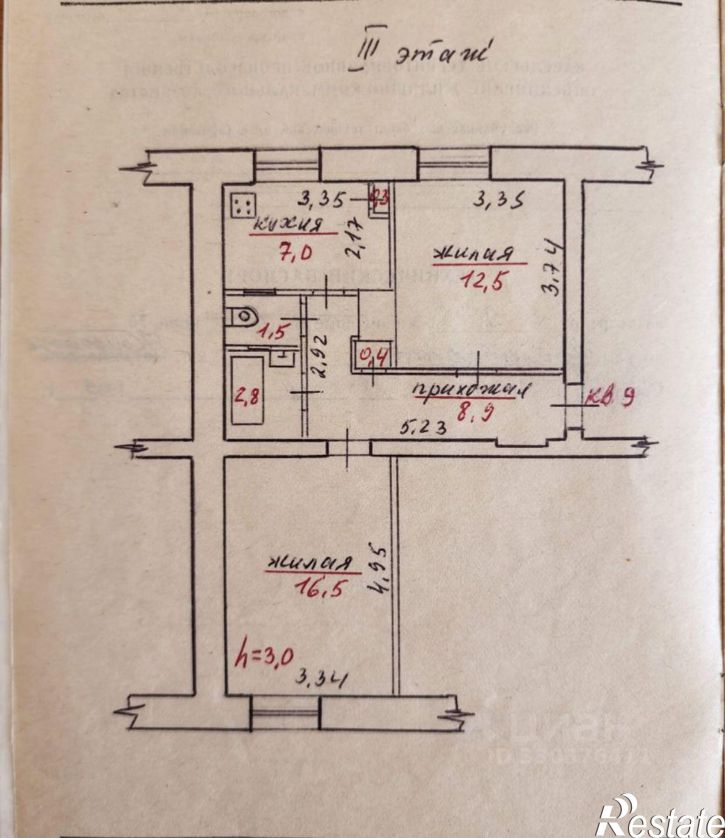 III этаж
3,35
0,3
3,35
кухня
7,0
2,17
жилая
12,5
3,74
1,5
2,92
0,4
2,8
прихожая
8,9
кв 9
5,23
жилая
16,5
4,95
h=3,0
3,34
циан
Restate